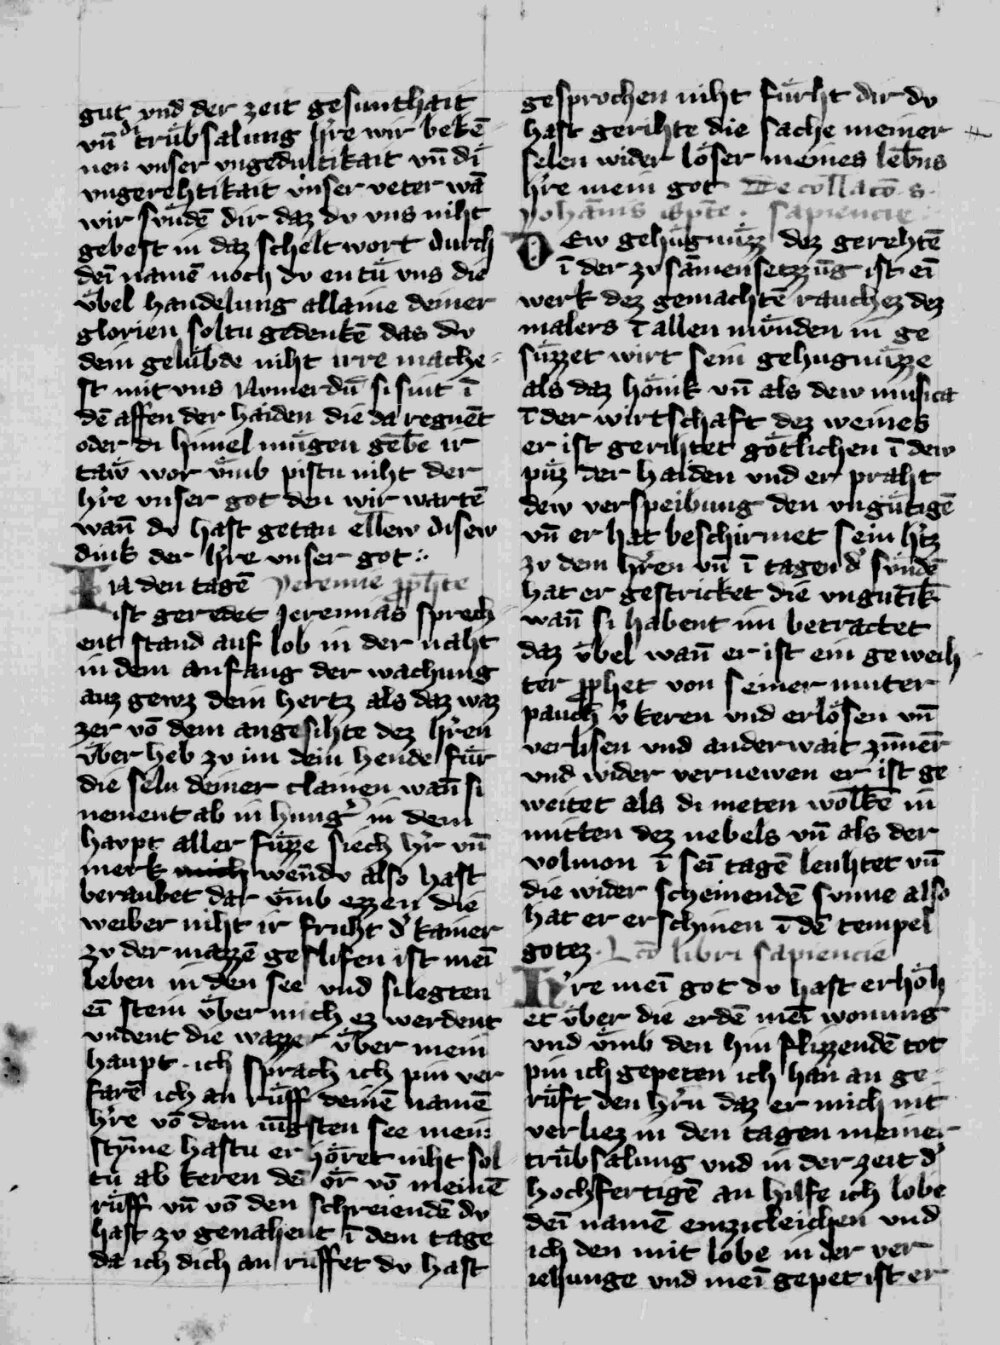 gut vnd der zeit gesunthait
vn̄ di trůbsalung h're wir bekē
nen vnser vngedultikait vn̄ di
vngerehtikait vnser veter wā
wir svndē dir daz dv vns niht
gebest in daz schelt wort durch
dei namē noch dv en tů vns die
vbel handelung allaine deiner
glorien soltu gedenkē das dv
dem gelůbde niht irre mache
st mit vns Nymer dū si sint ī
dē affen der haiden die da regnēt
oder di himel můgen gebē ir
taw wor vmb pistu niht der
h're vnser got den wir wartē
wan̄ dv hast getan ellew disew
dink der h're vnser got :·
IN den tagē Yeremie proph̄te
ist geredet Jeremias sprech
ent stand auf lob in der naht
in dem anfang der wachung
auz gewz dein hertz als daz waz
zer vō dem angesihte dez h'ren
vber heb zv im dein hende fůr
die seln deiner clainen wan̄ si
nement ab in hung' in dem
havpt aller fůzze siech h'r vn̄
merk mich wen̄ dv also hast
beraubet dar vmb ezzen die
weiber niht ir fruht d' kamer
zv der mazzē geslifen ist meī
leben in den see vnd si legten
eī stein vber mich ez werdent
vndent die wazzer vber mein
haupt · ich sprach ich pin ver
farē ich an růff deinē namē
h're vō dem iūgsten see mein
stȳme hastu er hőret niht sol
tu ab keren deī őr vō meinē
růff vn̄ vō den schreiendē dv
hast zv genahent ī dem tage
da ich dich an růffet dv hast
gesprochen niht fůrht dir dv
hast gerihte die sache meiner
selen wider lőser meines leb̄ns
h're mein got De collacō s.
yohānis ap̄te . sapiencie
DEw gehůgnůzz dez gerehtē
ī der zv samen setzzūg ist eī
werk dez gemachtē rauchez dez
malers ī allen mvnden in ge
sůzzet wirt sein gehugnůzze
als daz hőnik vn̄ als dew musica
ī der wirtschaft dez weines
er ist gerihtet gőtlichen ī dew
půz der haiden vnd er praht
dew verspeibung den vngůtigē
vn̄ er hat beschirmet sein h'tz
zv dem h'ren vn̄ ī tagen d' sůndē
hat er gestricket die vngutik̄
wan̄ si habent in betractet
daz vbel wan̄ er ist ein geweih
ter prophet von seiner muter
pauch v'keren vnd erlősen vn̄
verlisen vnd anderwait zim̄er̄
vnd wider vernewen er ist ge
weitet als di meten wolkē in
mitten dez nebels vn̄ als der
volmon ī seī tagē leuhtet vn̄
die wider scheinendē sunne also
hat er erschinen ī dē tempel
gotez · Lcō libri sapiencie
H're meī got dv hast erhőh
et vber die erdē meī wonung
vnd vmb den hin flizzendē tot
pin ich gepeten ich han an ge
růft den h'rn daz er mich nit
verliez in den tagen meiner
trůbsalung vnd in der zeit d'
hochfertigē an hilfe ich lobe
deī namē emzicleichen vnd
ich den mit lobe in der ver
iehunge vnd meī gepet ist er